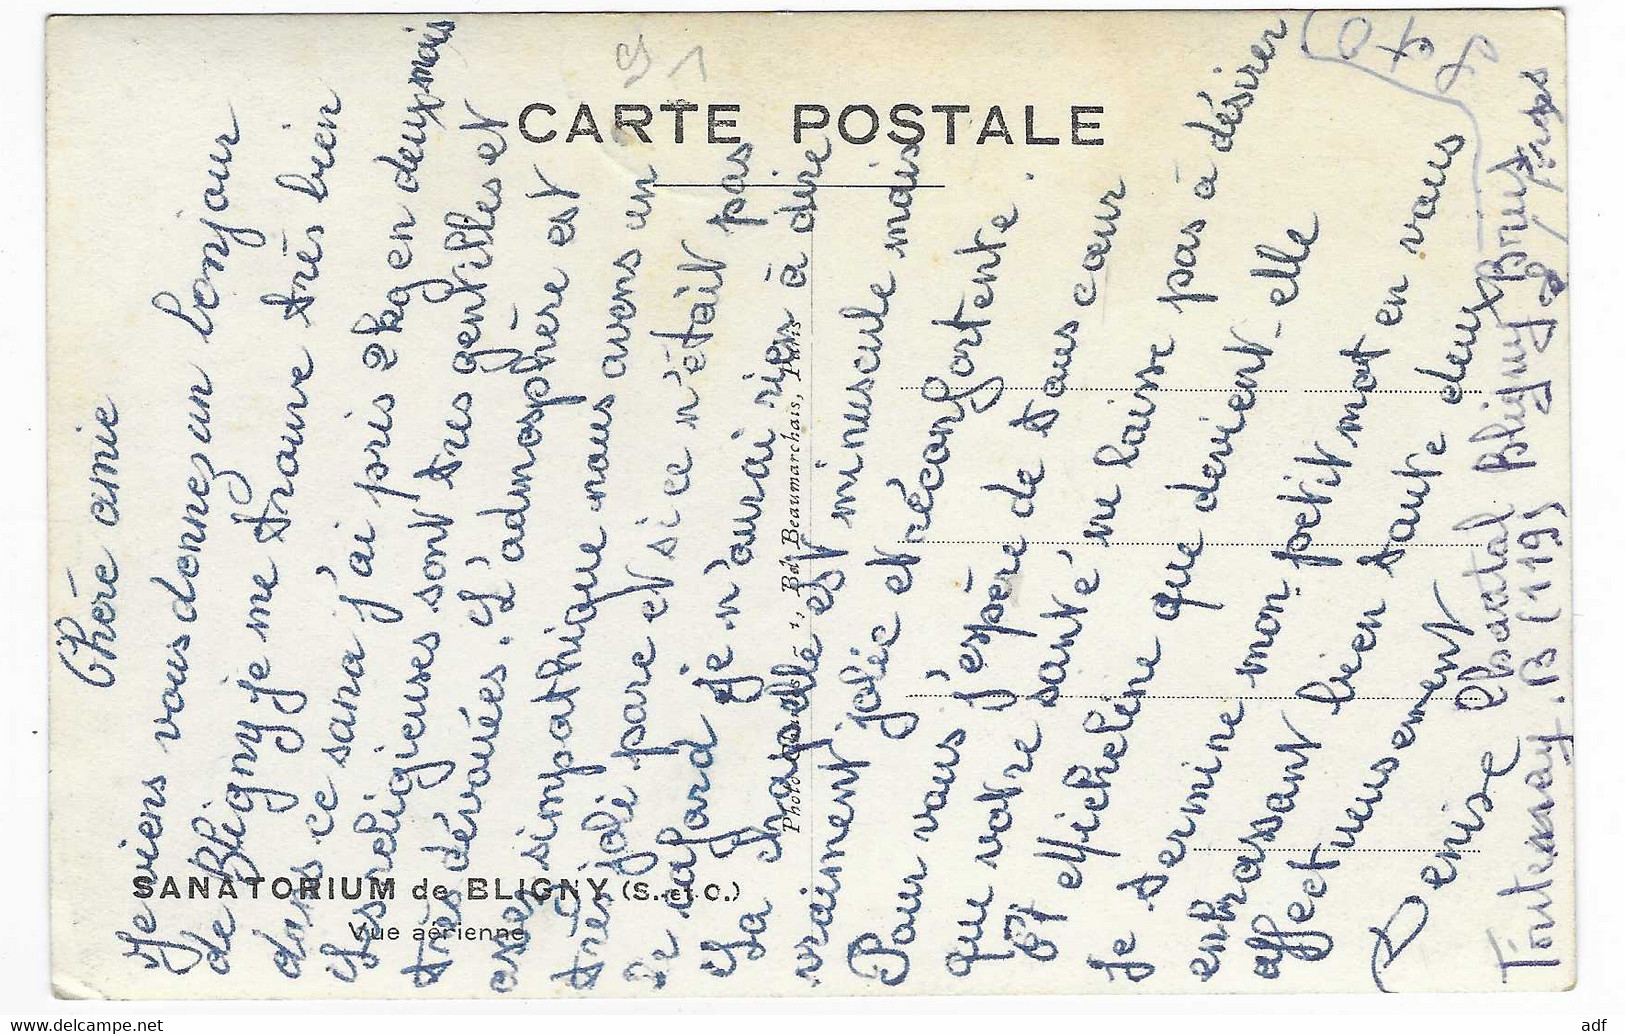 CARTE POSTALE
Chère amie
Je viens vous donnez un bonjour
de Bligny je me trouve très bien
dans ce sana j'ai pris 2 kg en deux mois
Les religieuses sont tres gentilles et
très dévouées. L'admosphère est
asser simpathique nous avons un
très joli parc et si ce n'était pas
le cafard je n'aurai rien à dire
La chapelle est minuscule mais
vraiment jolie et réconfortente.
Pour vous j'espère de tous cœur
que votre santé ne laisse pas à désirer
Et Micheline que devient-elle
Je termine mon petit mot en vous
embrassant bien toute deux
affectueusement
Denise
Fontenay. B (119)
SANATORIUM de BLIGNY (S.-et-O.)
Vue aérienne
1, Bd. Beaumarchais, Paris
www.delcampe.net
adf